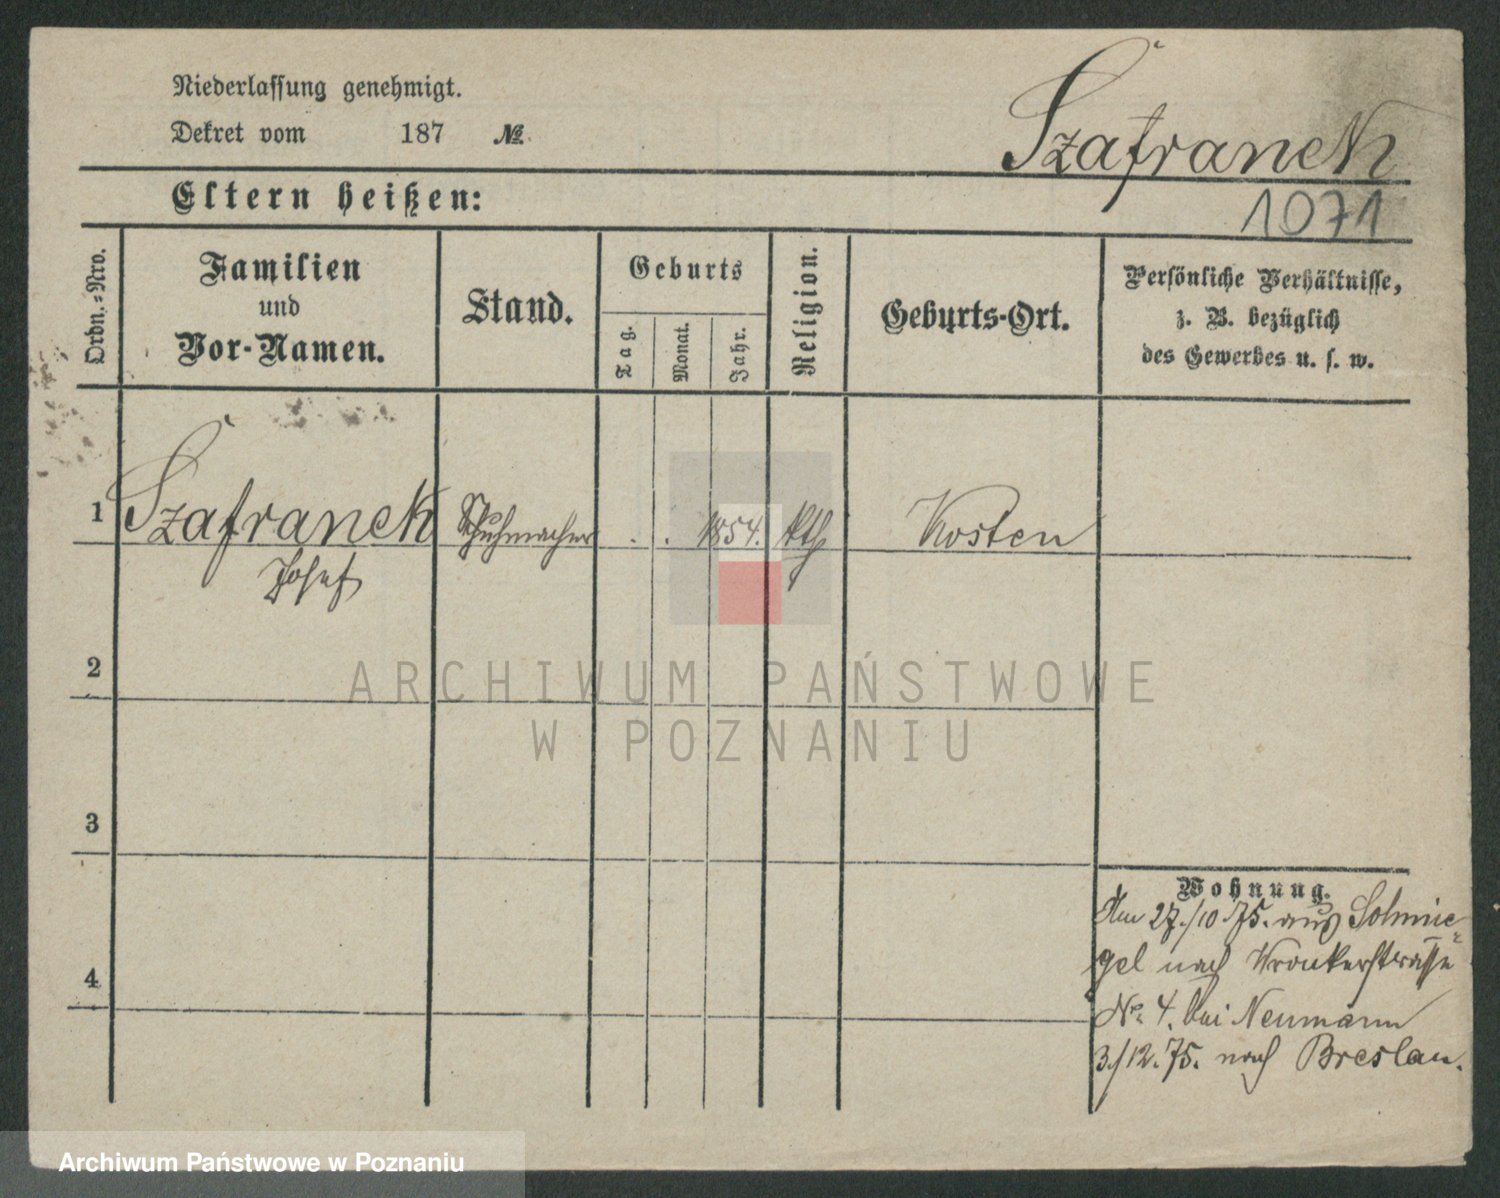 Niederlassung genehmigt.
Dekret vom 187 №
Szafranek
1071
Eltern heißen:
Ordn.=Nro.
Familien
und
Vor-Namen.
Stand.
Geburts
Tag.
Monat.
Jahr.
Religion.
Geburts-Ort.
Persönliche Verhältnisse,
z. B. bezüglich
des Gewerbes u. s. w.
1 Szafranek Schuhmacher . . 1854. kth Kosten
Josef
2
3
4
Wohnung.
Am 27./10.75. aus Schmie-
gel nach Wronkerstrasse
No. 4. bei Neumann
3./12.75. nach Breslau.
ARCHIWUM PAŃSTWOWE
W POZNANIU
Archiwum Państwowe w Poznaniu